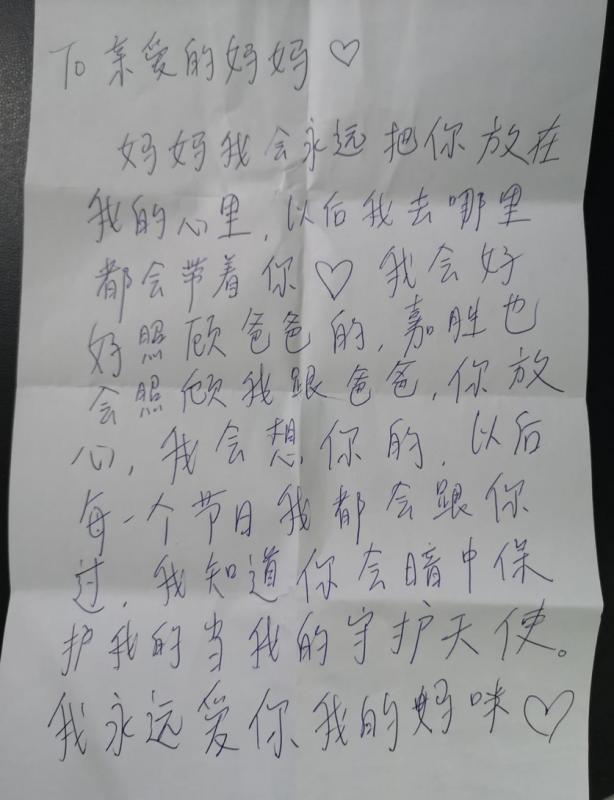 To 亲爱的妈妈♡
妈妈我会永远把你放在
我的心里,以后我去哪里
都会带着你♡我会好
好照顾爸爸的,嘉胜也
会照顾我跟爸爸,你放
心,我会想你的,以后
每一个节日我都会跟你
过,我知道你会暗中保
护我的当我的守护天使。
我永远爱你,我的妈咪♡